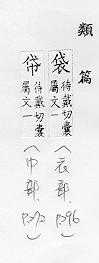 類篇
袋 待戴切囊屬文一 (衣部. P296)
帒 待戴切囊屬文一 (巾部. P272)